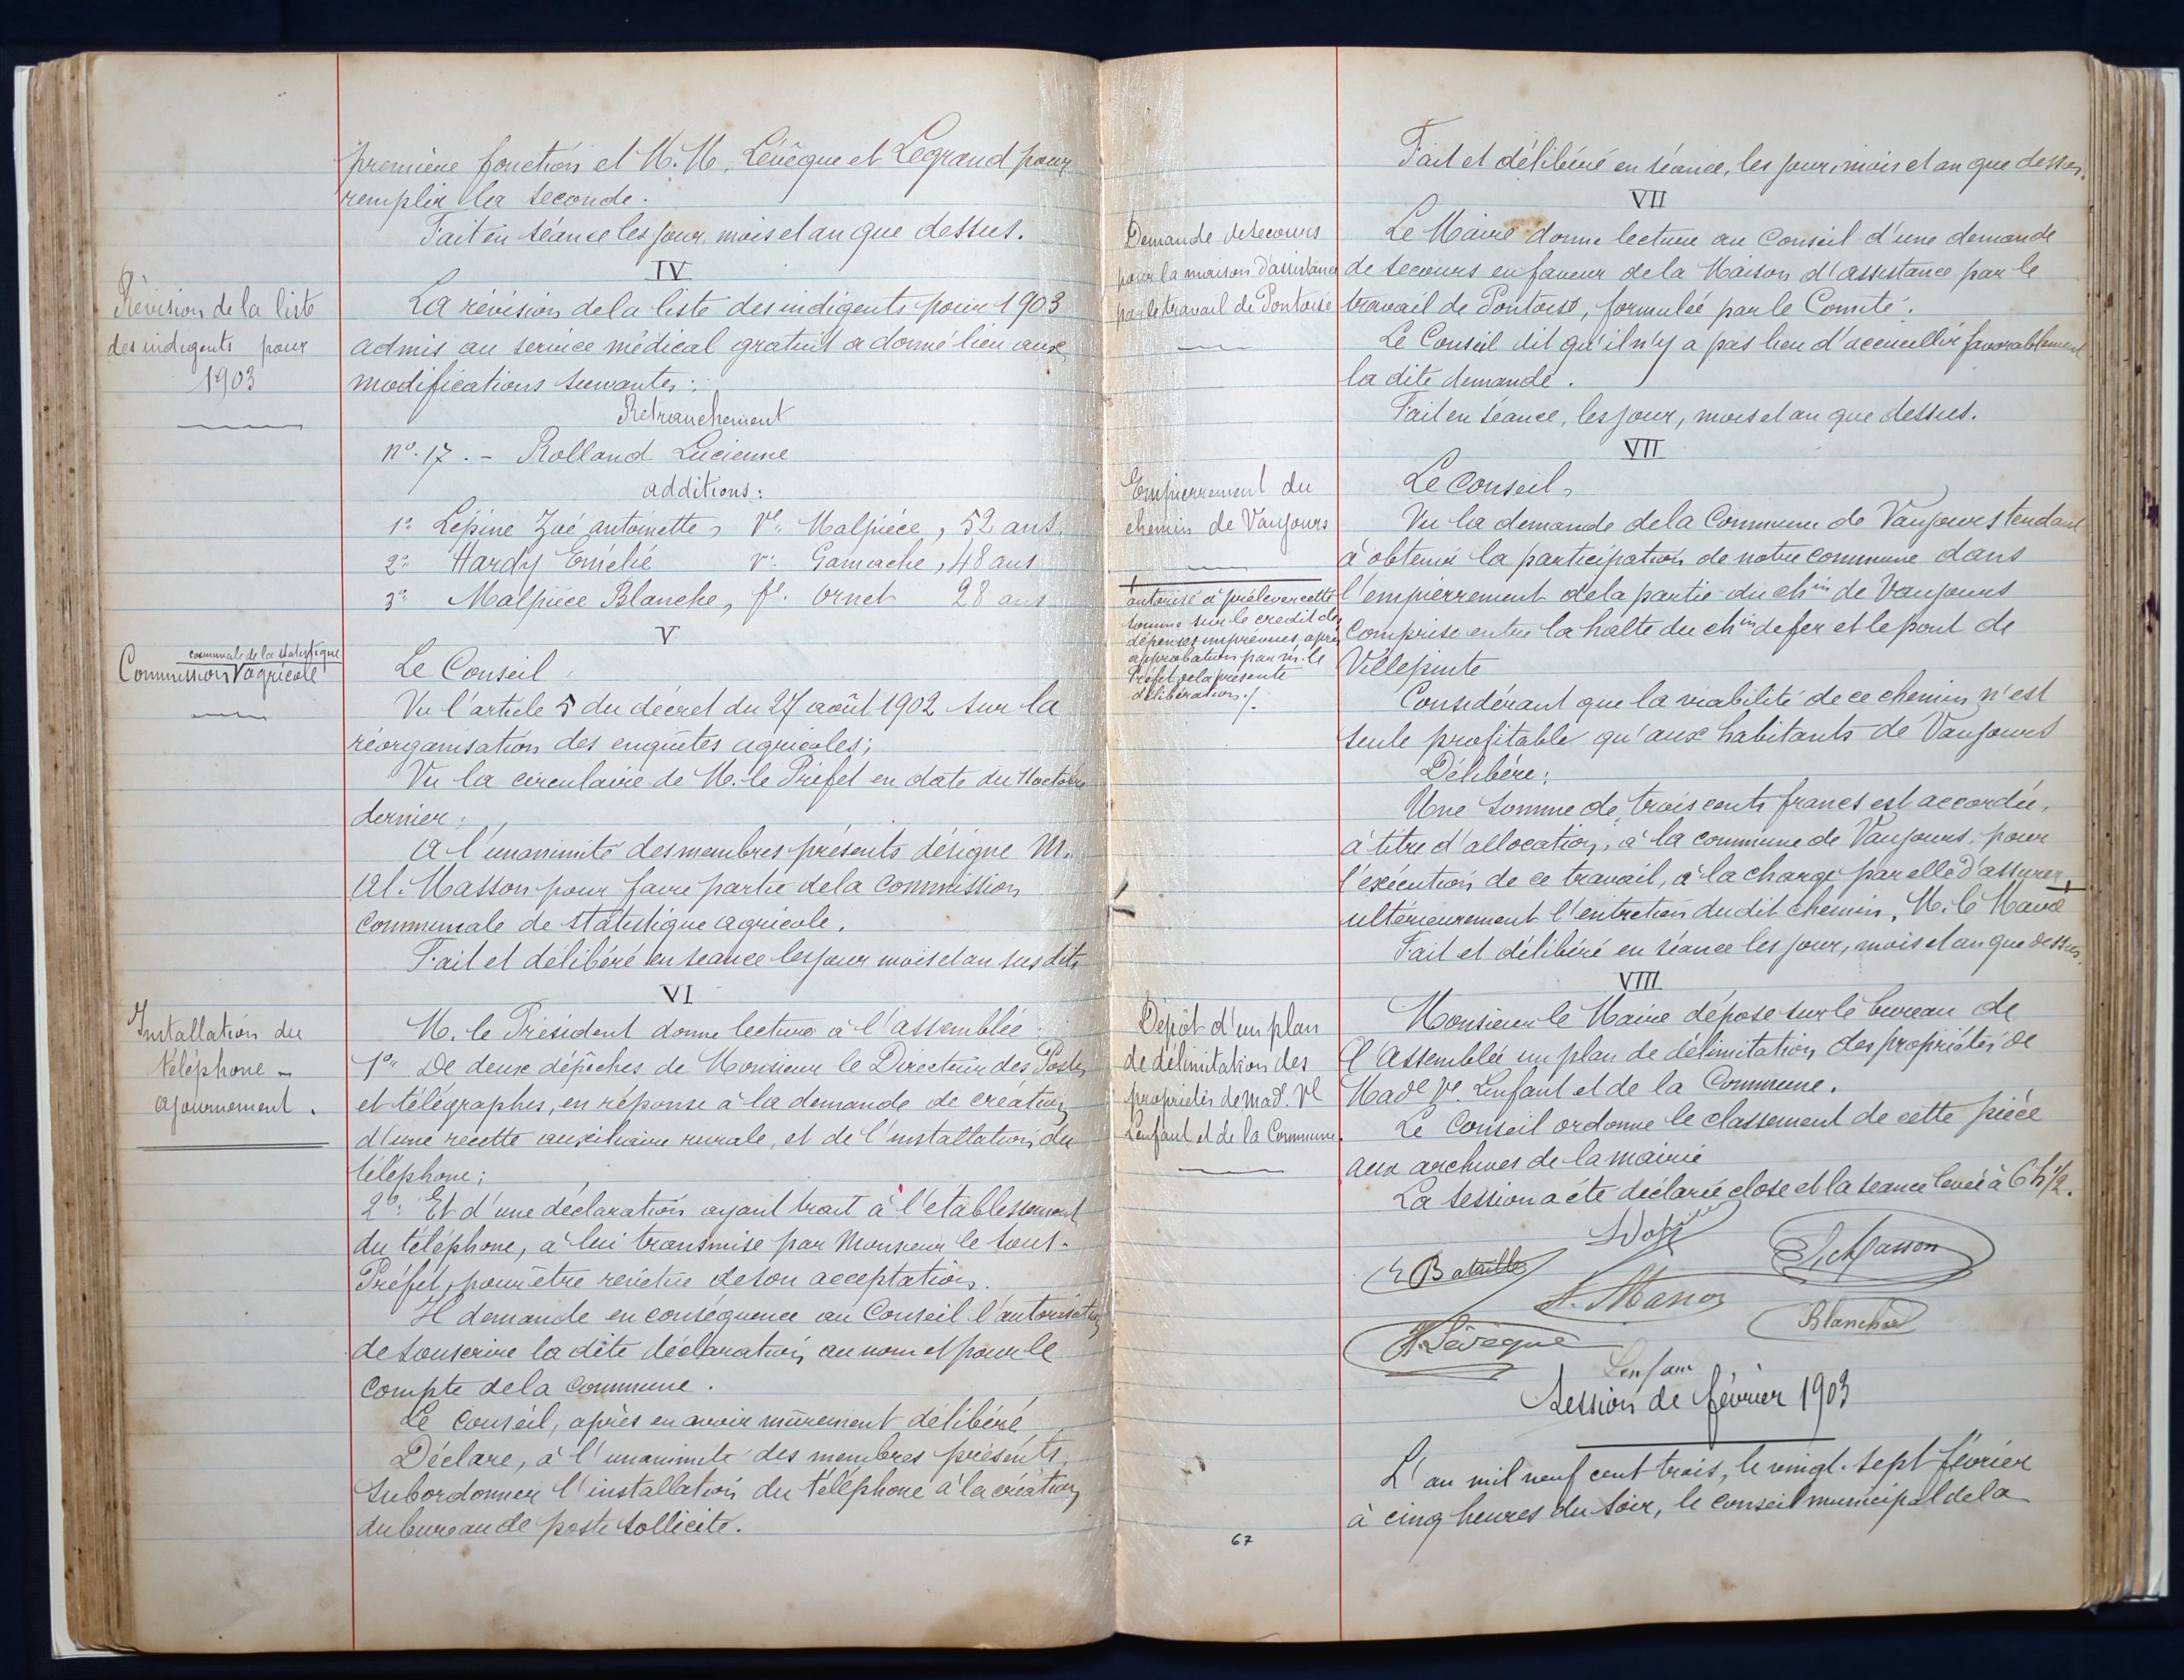 première fonction et M.M. Lévêque et Legrand pour
remplir la seconde.
Fait en séance les jour, mois et an que dessus.
IV
Révision de la liste
des indigents pour
1903
La révision de la liste des indigents pour 1903
admis au service médical gratuit a donné lieu aux
modifications suivantes :
Retranchement
n°. 17. - Rolland Lucienne
additions :
1° Lépine Zoé antoinette, Ve. Malpièce, 52 ans
2° Hardy Emélie ve. Gamache, 48 ans
3° Malpièce Blanche, fe. Ornet 28 ans
V
communale de la statistique
Commission V agricole
Le Conseil,
Vu l'article 5 du décret du 27 août 1902 sur la
réorganisation des enquêtes agricoles;
Vu la circulaire de M. le Préfet en date du 11 octobre
dernier;
A l'unanimité des membres présents désigne M.
Al. Masson pour faire partie de la commission
communale de statistique agricole.
Fait et délibéré en seance les jour mois et an susdits
VI
Installation du
téléphone -
ajournement.
M. le Président donne lecture à l'assemblée :
1° De deux dépêches de Monsieur le Directeur des Postes
et télégraphes, en réponse à la demande de création
d'une recette auxiliaire rurale, et de l'installation du
téléphone;
2° : Et d'une déclaration ayant trait à l'établissement
du téléphone, à lui transmise par Monsieur le Sous-
Préfet, pour être revêtue de son acceptation.
Il demande en conséquence au Conseil l'autorisation
de souscrire la dite déclaration, au nom et pour le
compte de la Commune.
Le Conseil, après en avoir mûrement délibéré
Déclare, à l'unanimité des membres présents,
subordonner l'installation du téléphone à la création
du bureau de poste sollicité.
Fait et délibéré en séance, les jour, mois et an que dessus.
VII
Demande de secours
pour la maison d'assistance
par le travail de Pontoise
Le Maire donne lecture au Conseil d'une demande
de secours en faveur de la Maison d'assistance par le
travail de Pontoise, formulée par le Comité.
Le Conseil dit qu'il n'y a pas lieu d'accueillir favorablement
la dite demande.
Fait en séance, les jour, mois et an que dessus.
VII
Empierrement du
chemin de Vaujours
Le Conseil,
Vu la demande de la Commune de Vaujours tendant
à obtenir la participation de notre commune dans
l'empierrement de la partie du chin de Vaujours
comprise entre la halte du chin de fer et le pont de
Villepinte
autorisé à prélever cette
somme sur le crédit des
dépenses imprévues, après
approbation par m. le
Préfet de la présente
délibération ./.
Considérant que la viabilité de ce chemin n'est
seule profitable qu'aux habitants de Vaujours
Délibère :
Une somme de trois cents francs est accordée,
à titre d'allocation, à la commune de Vaujours, pour
l'exécution de ce travail, à la charge par elle d'assurer
ultérieurement l'entretien dudit chemin. M. le Maire
Fait et délibéré en séance les jour, mois et an que dessus.
VIII
Dépôt d'un plan
de délimitation des
propriétés de Made. Ve
Lenfant et de la Commune.
Monsieur le Maire dépose sur le bureau de
l'Assemblée un plan de délimitation des propriétés de
Made Ve. Lenfant et de la Commune.
Le Conseil ordonne le classement de cette pièce
aux archives de la mairie
La session a été déclarée close et la seance levée à 6 h 1/2.
E Bataille
Masson
A. Masson
Blancher
H. Lévêque
Lenfant
Session de février 1903
L'an mil neuf cent trois, le vingt-sept février
à cinq heures du soir, le conseil municipal de la
67